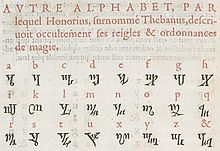 AVTRE ALPHABET, PAR
lequel Honorius, ſurnommé Thebanus, deſcri
uoit occultement ſes reigles & ordonnances
de magie.
a b c d e f g h
i k l m n o p q
r s t u x y z &